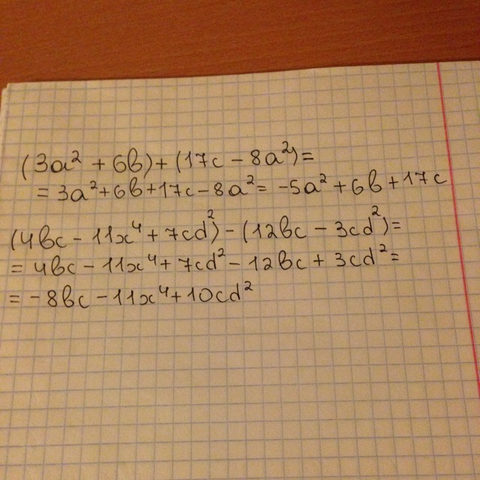 (3a² + 6b) + (17c - 8a²) =
= 3a² + 6b + 17c - 8a² = -5a² + 6b + 17c
(4bc - 11x⁴ + 7cd²) - (12bc - 3cd²) =
= 4bc - 11x⁴ + 7cd² - 12bc + 3cd² =
= -8bc - 11x⁴ + 10cd²